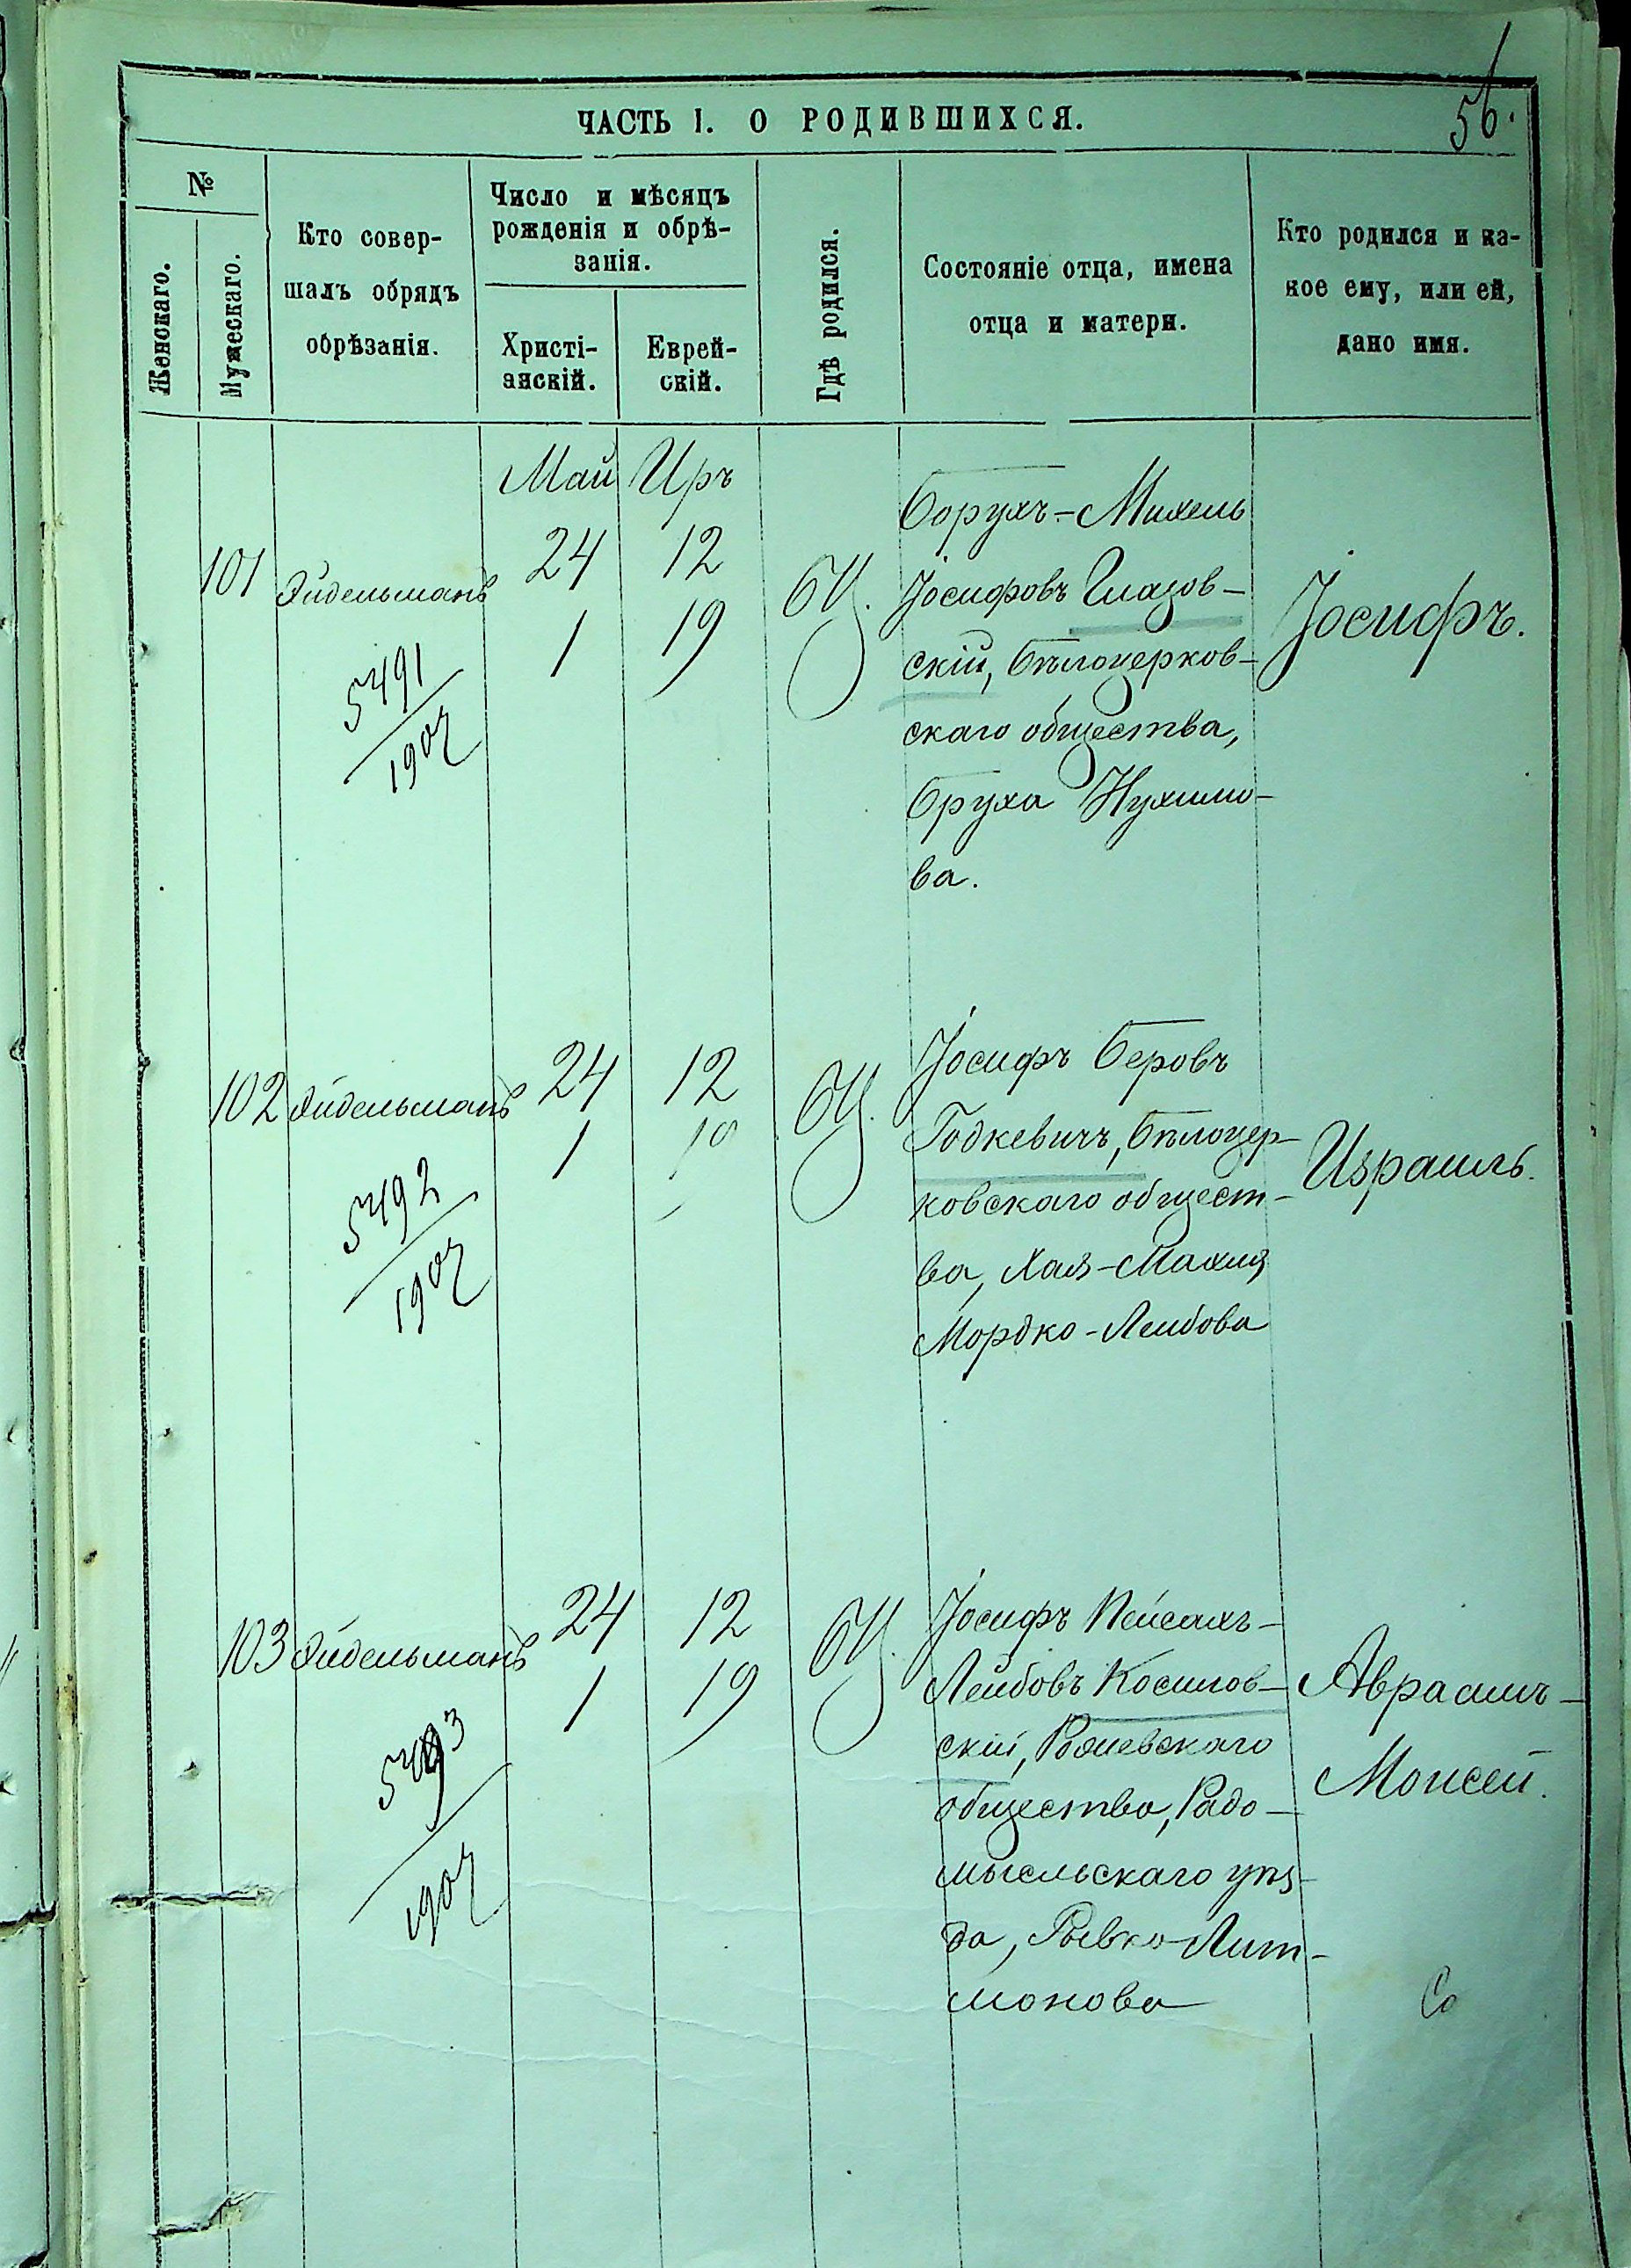 56.
ЧАСТЬ I. О РОДИВШИХСЯ.
№
Женскаго.
Мужескаго.
Кто совер-
шалъ обрядъ
обрѣзанія.
Число и мѣсяцъ
рожденія и обрѣ-
занія.
Христі-
анскій.
Еврей-
скій.
Гдѣ родился.
Состояніе отца, имена
отца и матери.
Кто родился и ка-
кое ему, или ей,
дано имя.
Май Иръ
101 Эйдельманъ
24 12
1 19
БЦ.
5491
1907
Борухъ-Михель
Іосифовъ Глазов-
скій, Бѣлоцерков-
скаго общества,
Бруха Нухимо-
ва.
Іосифъ.
102 Эйдельманъ
24 12
1 19
БЦ.
5492
1907
Іосифъ Беровъ
Годкевичъ, Бѣлоцер-
ковскаго общест-
ва, Хая-Махля
Мордко-Лейбова
Израиль.
103 Эйдельманъ
24 12
1 19
БЦ.
5493
1907
Іосифъ Пейсахъ-
Лейбовъ Косилов-
скій,
общества, Радо-
мысльскаго уѣз-
да, Рывка Лит-
монова
Авраамъ-
Моисей.